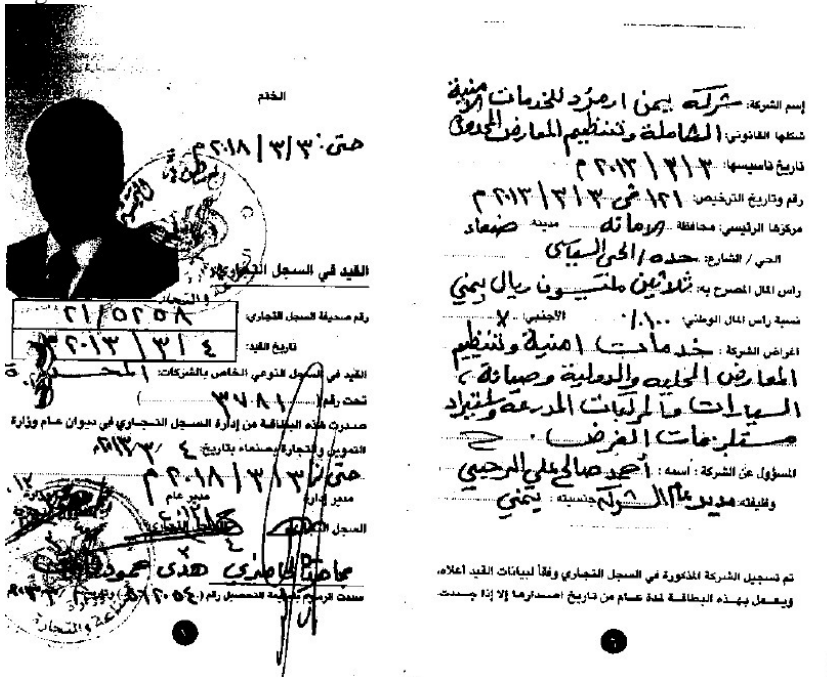 إسم الشركة: شركة يمن ارمرد للخدمات الامنية
شكلها القانوني: الشاملة وتنظيم المعارض المحدودة
تاريخ تاسيسها: ٣ / ٣ / ٢٠١٣ م
رقم وتاريخ الترخيص: ١٢١ في ٣ / ٣ / ٢٠١٣ م
مركزها الرئيسي: محافظة الامانه مدينه صنعاء
الحي / الشارع: حده / الحي السياسي
راس المال المصرح به: ثلاثين مليون ريال يمني
نسبة راس المال الوطني: ١٠٠٪ الأجنبي: X
اغراض الشركة: خدمات امنية وتنظيم
المعارض المحليه والدولية وصيانة
السيارات والمركبات المدرعه واستيراد
مستلزمات الغرض.
المسؤول عن الشركة: اسمه: أحمد صالح علي الرحبي
وظيفته: مدير عام الشركة جنسيته: يمني
تم تسجيل الشركة المذكورة في السجل التجاري وفقاً لبيانات القيد أعلاه،
ويعمل بهذه البطاقة لمدة عام من تاريخ اصدارها إلا إذا جددت.
٦
الختم
حتى: ٣ / ٣ / ٢٠١٨ م
القيد في السجل التجاري
رقم صحيفة السجل التجاري: ٢١/٥٢٥٨
تاريخ القيد: ٤ / ٣ / ٢٠١٣
القيد في السجل النوعي الخاص بالشركات:
تحت رقم ( ٣٧٨١ )
صدرت هذه البطاقة من إدارة السجل التجاري في ديوان عام وزارة
التموين والتجارة بصنعاء بتاريخ: ٤ / ٣ / ٢٠١٣م
حتى ٣ / ٣ / ٢٠١٨ م
مدير إدارة مدير عام
السجل التجاري
هدى محمود
سددت الرسوم بقسيمة التحصيل رقم